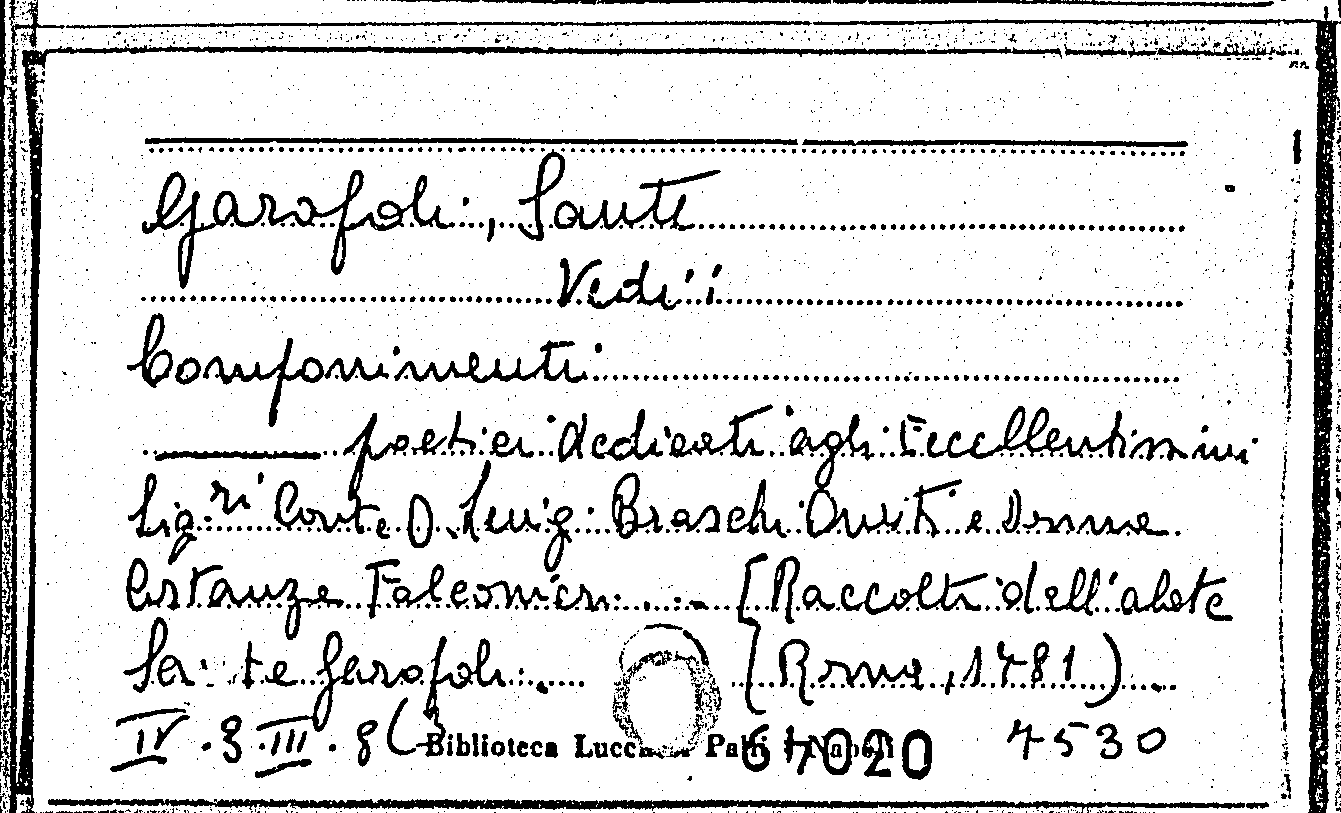 Garofoli, Sante
Vedi:
Componimenti
poetici dedicati agli Eccellentissimi
Sig.ri Conte D. Luigi Braschi Onesti e Donna
Costanza Falconieri .... [Raccolti dell'abate
Sante Garofoli ... [Roma, 1781) ...
IV . 8 . III . 8 (3 Biblioteca Lucchesi Palli Napoli 64020 4530